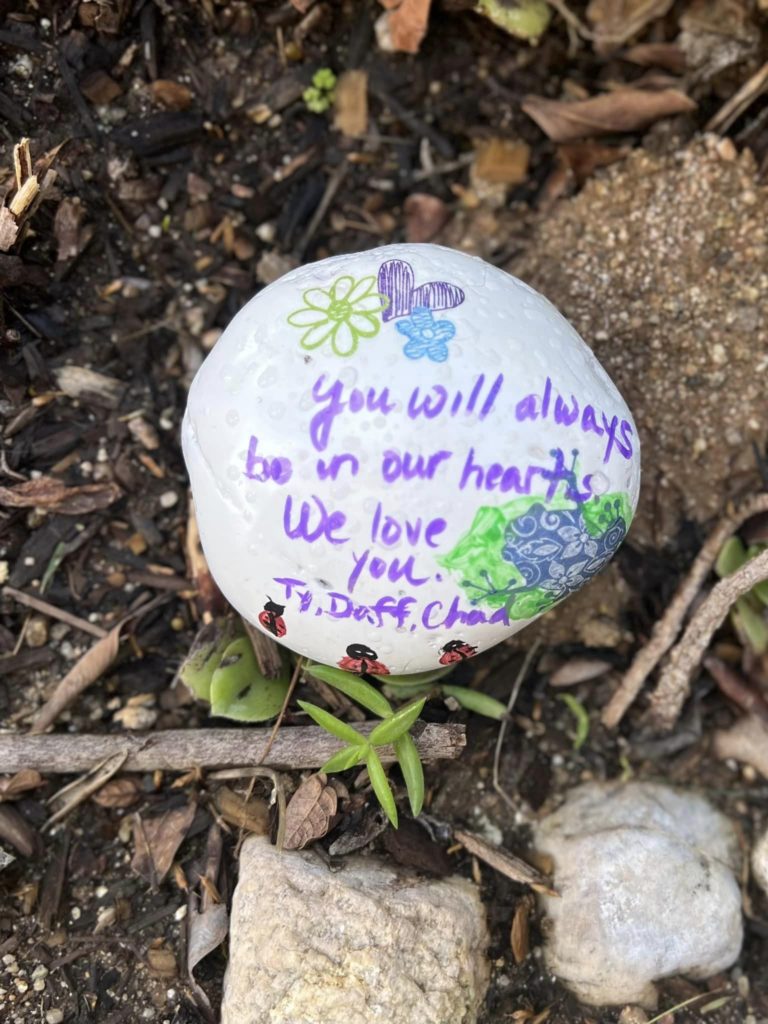 You will always
be in our hearts.
We love
you.
Ty, Duff, Chad